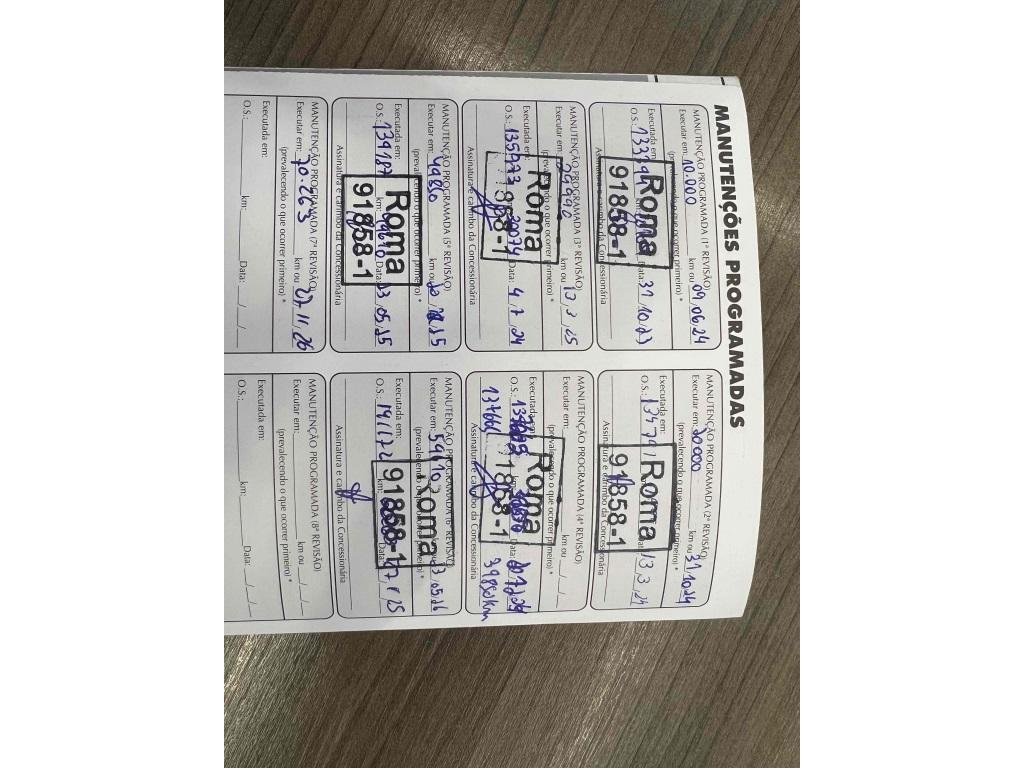 MANUTENÇÕES PROGRAMADAS
MANUTENÇÃO PROGRAMADA (1ª REVISÃO)
Executar em: 10.000 km ou 09/06/24
(prevalecendo o que ocorrer primeiro) *
Executada em:
O.S.: Data: 31/10/23
Roma
91858-1
Assinatura e carimbo da Concessionária
MANUTENÇÃO PROGRAMADA (2ª REVISÃO)
Executar em: 20000 km ou 31/10/24
(prevalecendo o que ocorrer primeiro) *
Executada em:
O.S.: 13/3/24
Roma
91858-1
Assinatura e carimbo da Concessionária
MANUTENÇÃO PROGRAMADA (3ª REVISÃO)
Executar em: km ou 13/3/25
(prevalecendo o que ocorrer primeiro) *
Executada em:
O.S.: 135973 30074 Data: 4/7/24
Roma
858-1
Assinatura e carimbo da Concessionária
MANUTENÇÃO PROGRAMADA (4ª REVISÃO)
Executar em: km ou
(prevalecendo o que ocorrer primeiro) *
Executada em:
O.S.: Data:
Roma
1858-1
137661 39850km
Assinatura e carimbo da Concessionária
MANUTENÇÃO PROGRAMADA (5ª REVISÃO)
Executar em: 49850 km ou
(prevalecendo o que ocorrer primeiro) *
Executada em:
O.S.: 139187 km: 49610 Data: 23/05/25
Roma
91858-1
Assinatura e carimbo da Concessionária
MANUTENÇÃO PROGRAMADA (6ª REVISÃO)
Executar em: 59610 23/05/26
(prevalecendo o que ocorrer primeiro) *
Executada em:
O.S.: 141172 km:
Roma
91858-1
Assinatura e carimbo da Concessionária
MANUTENÇÃO PROGRAMADA (7ª REVISÃO)
Executar em: 70.263 km ou 27/11/26
(prevalecendo o que ocorrer primeiro) *
Executada em:
O.S.: km: Data: / /
MANUTENÇÃO PROGRAMADA (8ª REVISÃO)
Executar em: km ou / /
(prevalecendo o que ocorrer primeiro) *
Executada em:
O.S.: km: Data: / /